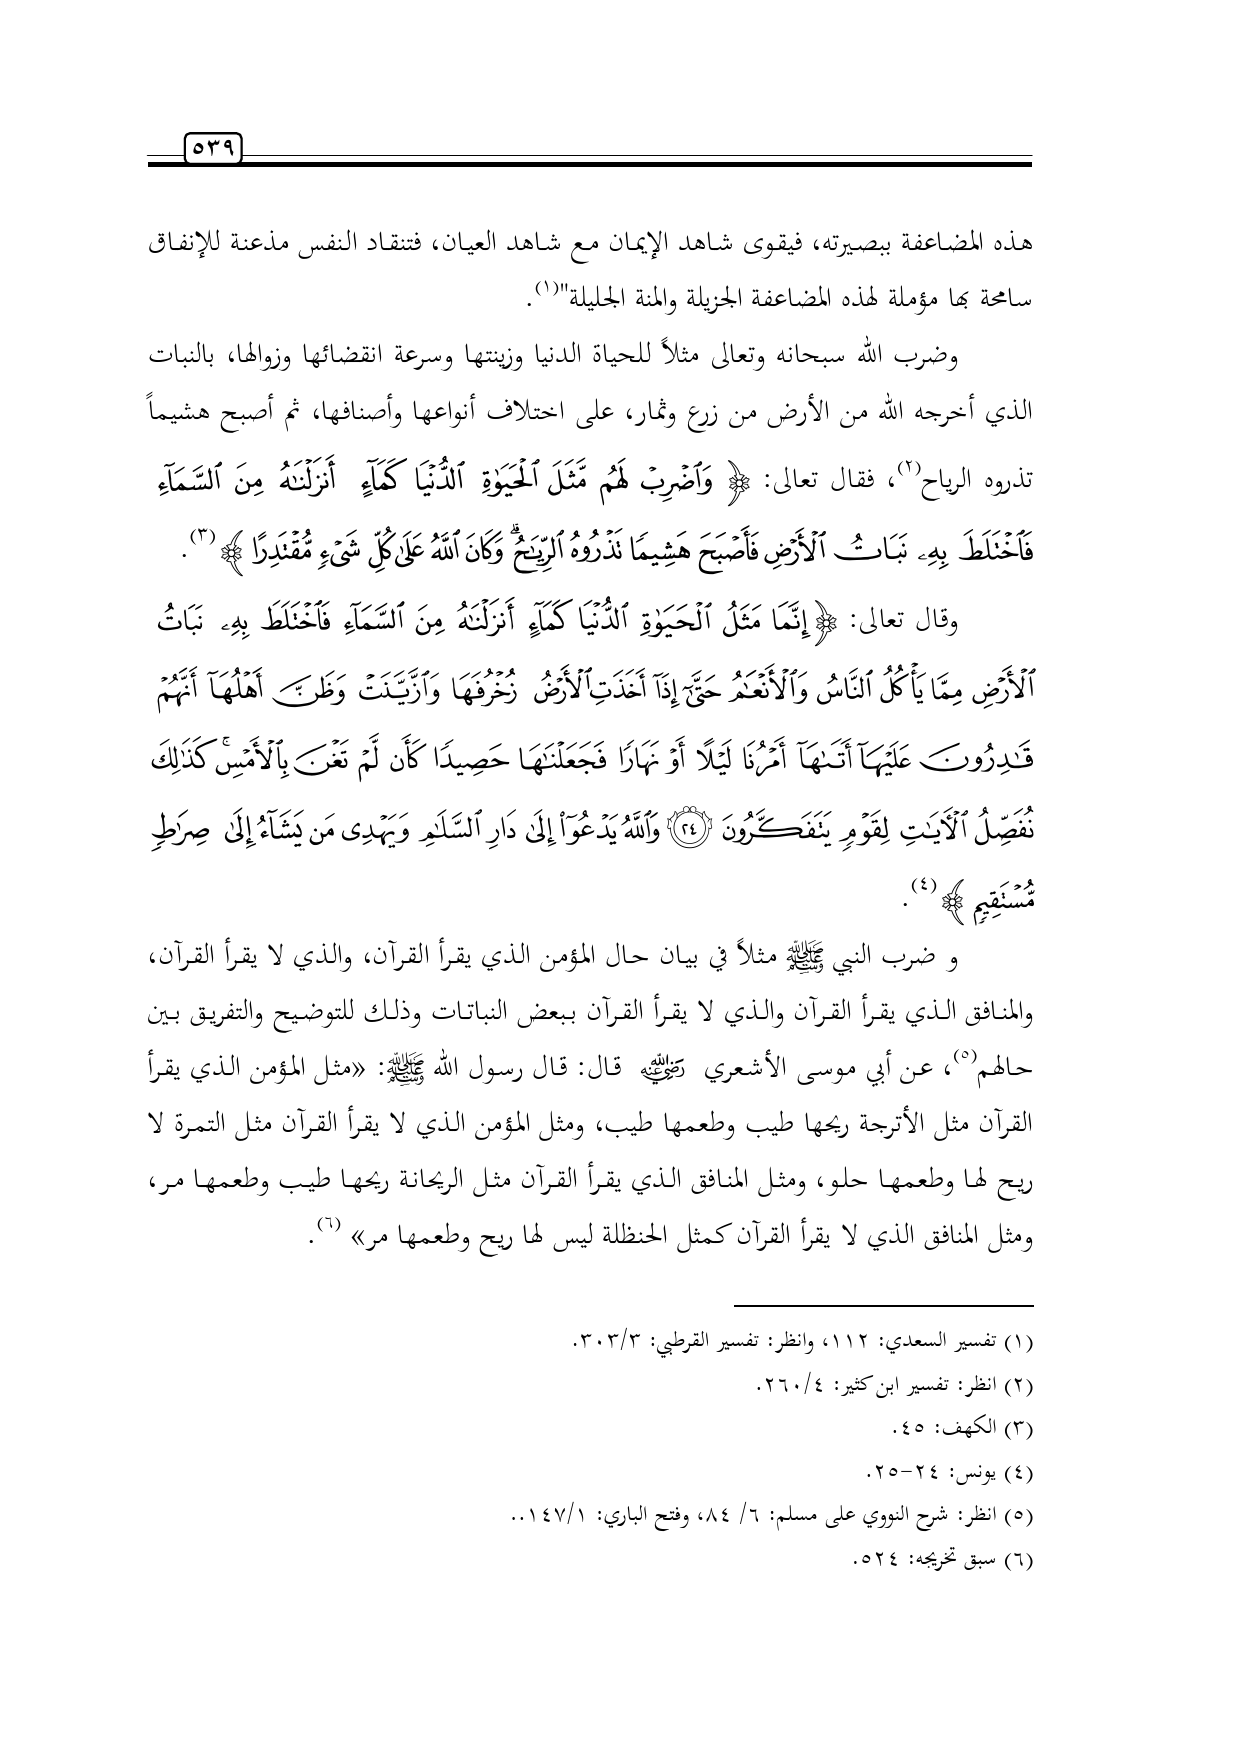 ٥٣٩
هذه المضاعفة ببصيرته، فيقوى شاهد الإيمان مع شاهد العيان، فتنقاد النفس مذعنة للإنفاق
سامحة بها مؤملة لهذه المضاعفة الجزيلة والمنة الجليلة"(١).
وضرب الله سبحانه وتعالى مثلاً للحياة الدنيا وزينتها وسرعة انقضائها وزوالها، بالنبات
الذي أخرجه الله من الأرض من زرع وثمار، على اختلاف أنواعها وأصنافها، ثم أصبح هشيماً
تذروه الرياح(٢)، فقال تعالى: ﴿ وَٱضْرِبْ لَهُم مَّثَلَ ٱلْحَيَوٰةِ ٱلدُّنْيَا كَمَآءٍ أَنزَلْنَٰهُ مِنَ ٱلسَّمَآءِ
فَٱخْتَلَطَ بِهِۦ نَبَاتُ ٱلْأَرْضِ فَأَصْبَحَ هَشِيمًا تَذْرُوهُ ٱلرِّيَٰحُ ۗ وَكَانَ ٱللَّهُ عَلَىٰ كُلِّ شَىْءٍ مُّقْتَدِرًا ﴾(٣).
وقال تعالى: ﴿ إِنَّمَا مَثَلُ ٱلْحَيَوٰةِ ٱلدُّنْيَا كَمَآءٍ أَنزَلْنَٰهُ مِنَ ٱلسَّمَآءِ فَٱخْتَلَطَ بِهِۦ نَبَاتُ
ٱلْأَرْضِ مِمَّا يَأْكُلُ ٱلنَّاسُ وَٱلْأَنْعَٰمُ حَتَّىٰٓ إِذَآ أَخَذَتِ ٱلْأَرْضُ زُخْرُفَهَا وَٱزَّيَّنَتْ وَظَنَّ أَهْلُهَآ أَنَّهُمْ
قَٰدِرُونَ عَلَيْهَآ أَتَىٰهَآ أَمْرُنَا لَيْلًا أَوْ نَهَارًا فَجَعَلْنَٰهَا حَصِيدًا كَأَن لَّمْ تَغْنَ بِٱلْأَمْسِ ۚ كَذَٰلِكَ
نُفَصِّلُ ٱلْءَايَٰتِ لِقَوْمٍ يَتَفَكَّرُونَ ٢٤ وَٱللَّهُ يَدْعُوٓا۟ إِلَىٰ دَارِ ٱلسَّلَٰمِ وَيَهْدِى مَن يَشَآءُ إِلَىٰ صِرَٰطٍ
مُّسْتَقِيمٍ ﴾(٤).
و ضرب النبي ﷺ مثلاً في بيان حال المؤمن الذي يقرأ القرآن، والذي لا يقرأ القرآن،
والمنافق الذي يقرأ القرآن والذي لا يقرأ القرآن ببعض النباتات وذلك للتوضيح والتفريق بين
حالهم(٥)، عن أبي موسى الأشعري رضي الله عنه قال: قال رسول الله ﷺ: «مثل المؤمن الذي يقرأ
القرآن مثل الأترجة ريحها طيب وطعمها طيب، ومثل المؤمن الذي لا يقرأ القرآن مثل التمرة لا
ريح لها وطعمها حلو، ومثل المنافق الذي يقرأ القرآن مثل الريحانة ريحها طيب وطعمها مر،
ومثل المنافق الذي لا يقرأ القرآن كمثل الحنظلة ليس لها ريح وطعمها مر» (٦).
(١) تفسير السعدي: ١١٢، وانظر: تفسير القرطبي: ٣٠٣/٣.
(٢) انظر: تفسير ابن كثير: ٢٦٠/٤.
(٣) الكهف: ٤٥.
(٤) يونس: ٢٤-٢٥.
(٥) انظر: شرح النووي على مسلم: ٦/ ٨٤، وفتح الباري: ١٤٧/١..
(٦) سبق تخريجه: ٥٢٤.